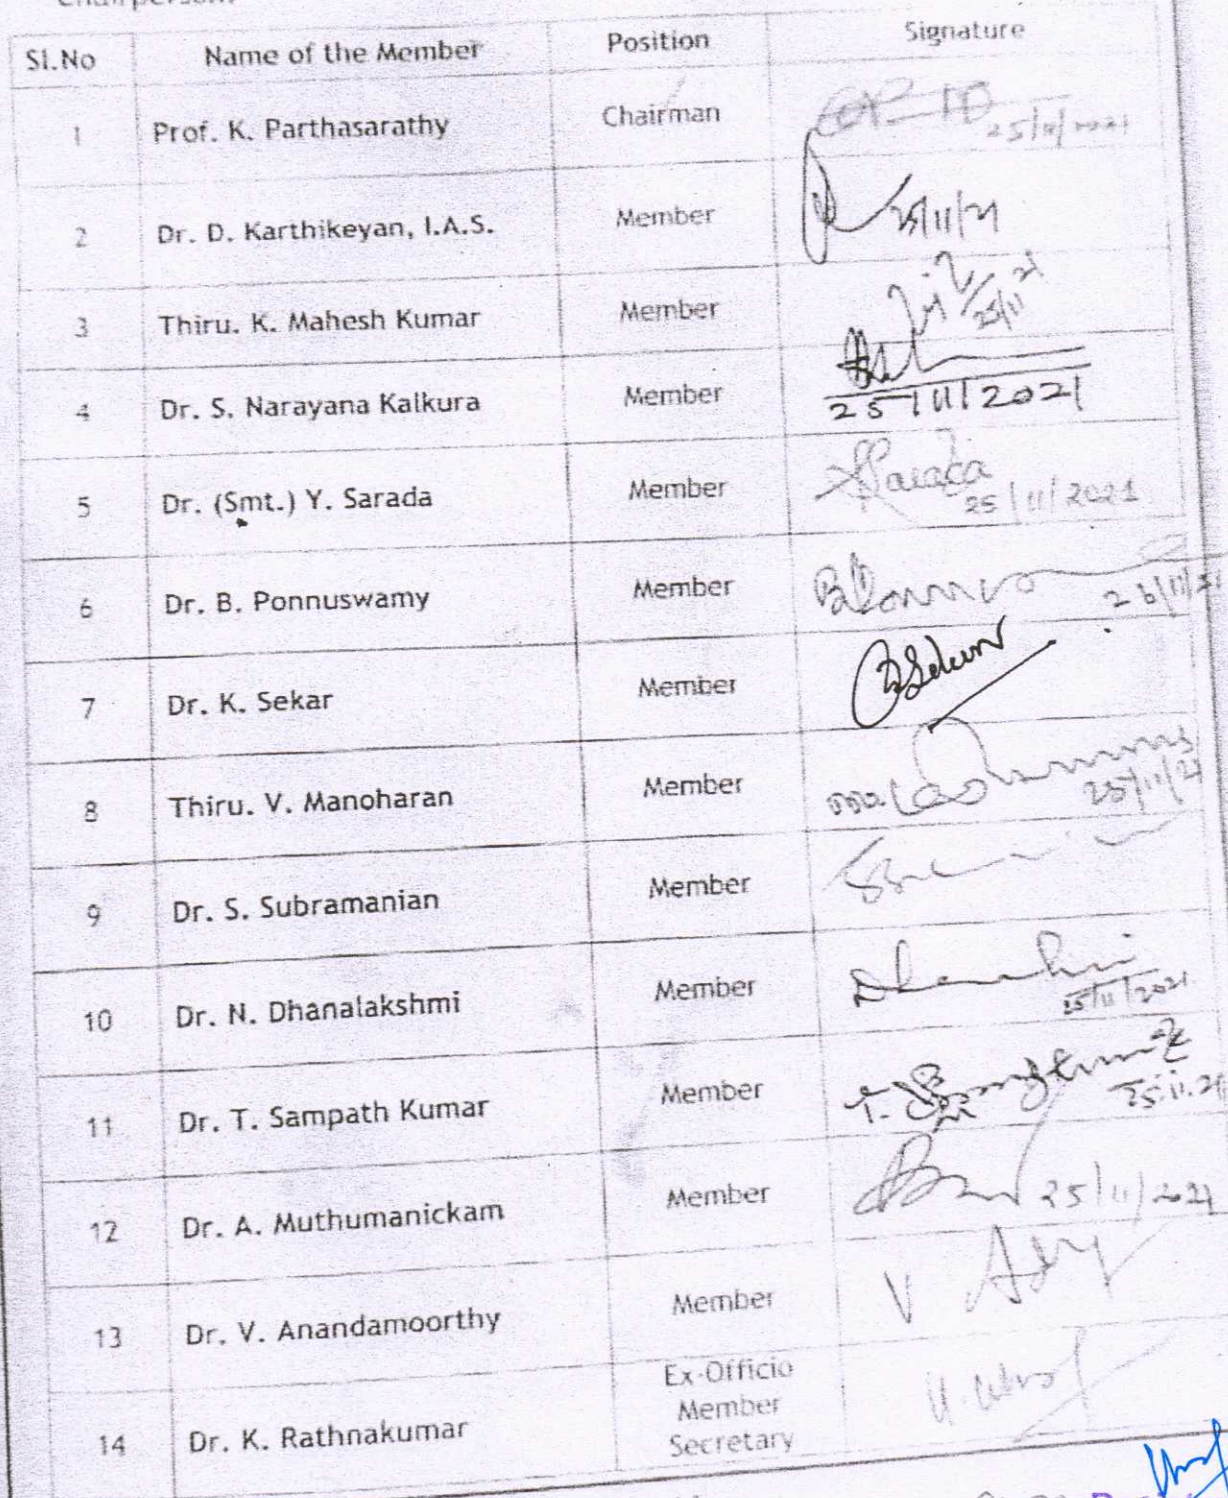 Chairperson.
Sl.No Name of the Member Position Signature
1 Prof. K. Parthasarathy Chairman 25/11/2021
2 Dr. D. Karthikeyan, I.A.S. Member 25/11/21
3 Thiru. K. Mahesh Kumar Member 25/11/21
4 Dr. S. Narayana Kalkura Member 25/11/2021
5 Dr. (Smt.) Y. Sarada Member YSarada 25/11/2021
6 Dr. B. Ponnuswamy Member 26/11/21
7 Dr. K. Sekar Member Sekar
8 Thiru. V. Manoharan Member 25/11/21
9 Dr. S. Subramanian Member
10 Dr. N. Dhanalakshmi Member 25/11/2021
11 Dr. T. Sampath Kumar Member 25.11.21
12 Dr. A. Muthumanickam Member 25/11/2021
13 Dr. V. Anandamoorthy Member V
14 Dr. K. Rathnakumar Ex-Officio
Member
Secretary